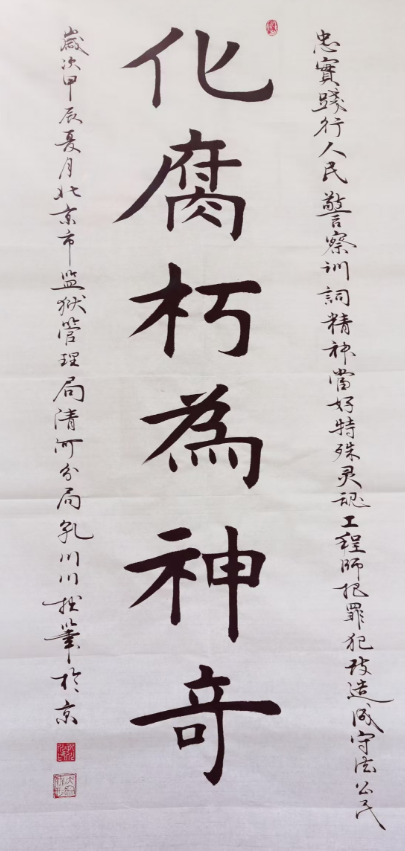 忠實踐行人民警察训詞精神當好特殊灵魂工程師把罪犯改造成守法公民
化腐朽為神奇
歲次甲辰夏月北京市监狱管理局清河分局孔川川撰筆於京